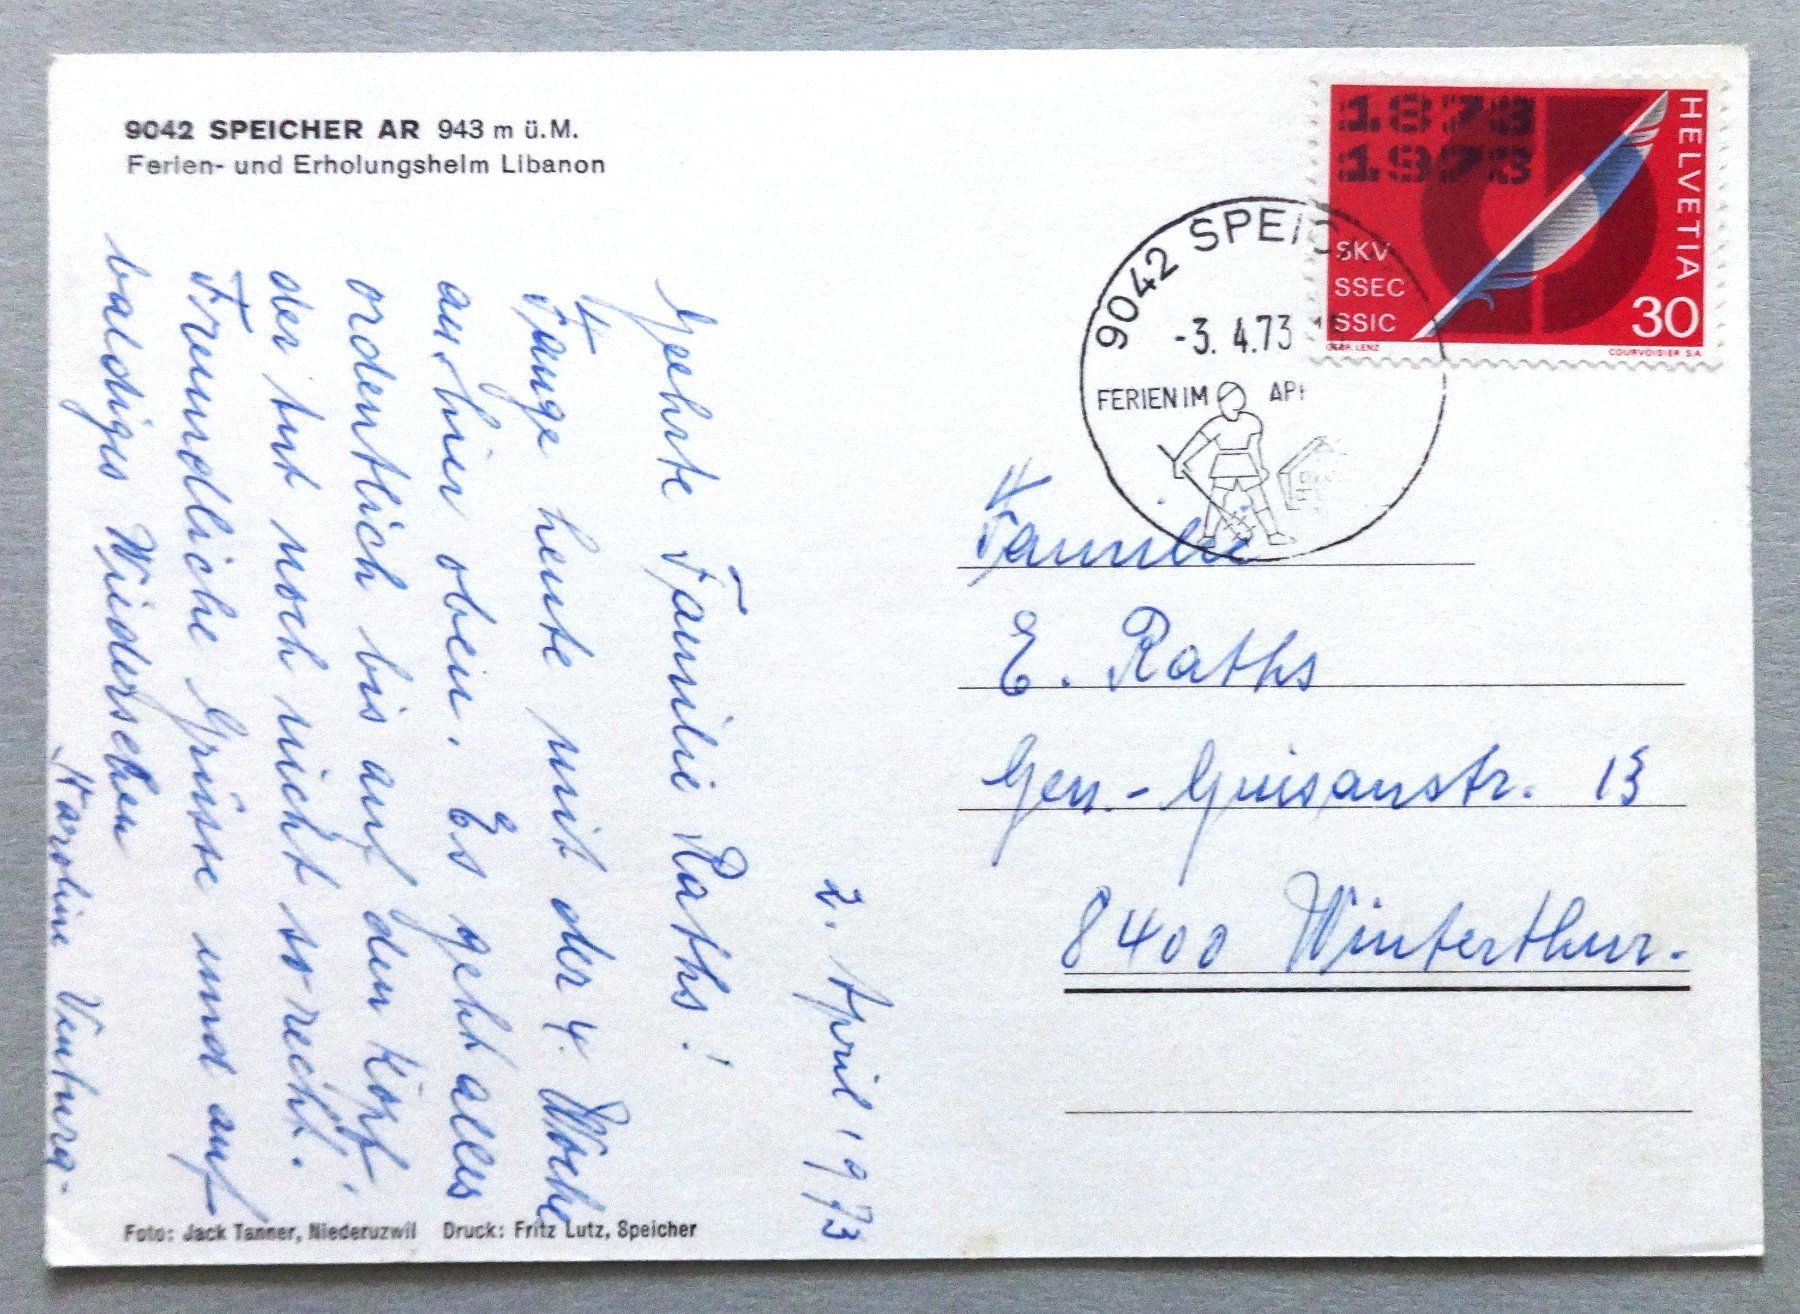 9042 SPEICHER AR 943 m ü.M.
Ferien- und Erholungsheim Libanon
2. April 1973
Geehrte Familie Raths!
Fange heute mit der 4. Woche
aushier oben. Es geht alles
ordentlich bis auf den Kopf,
der tut noch nicht so recht.
Freundliche Grüsse und auf
baldiges Wiedersehen
Karoline
Foto: Jack Tanner, Niederuzwil Druck: Fritz Lutz, Speicher
1873
1973
HELVETIA
SKV
SSEC
SSIC
30
COURVOISIER S.A.
9042 SPEIC
-3. 4.73
FERIEN IM AP
Familie
E. Raths
Gen.-Guisanstr. 13
8400 Winterthur.